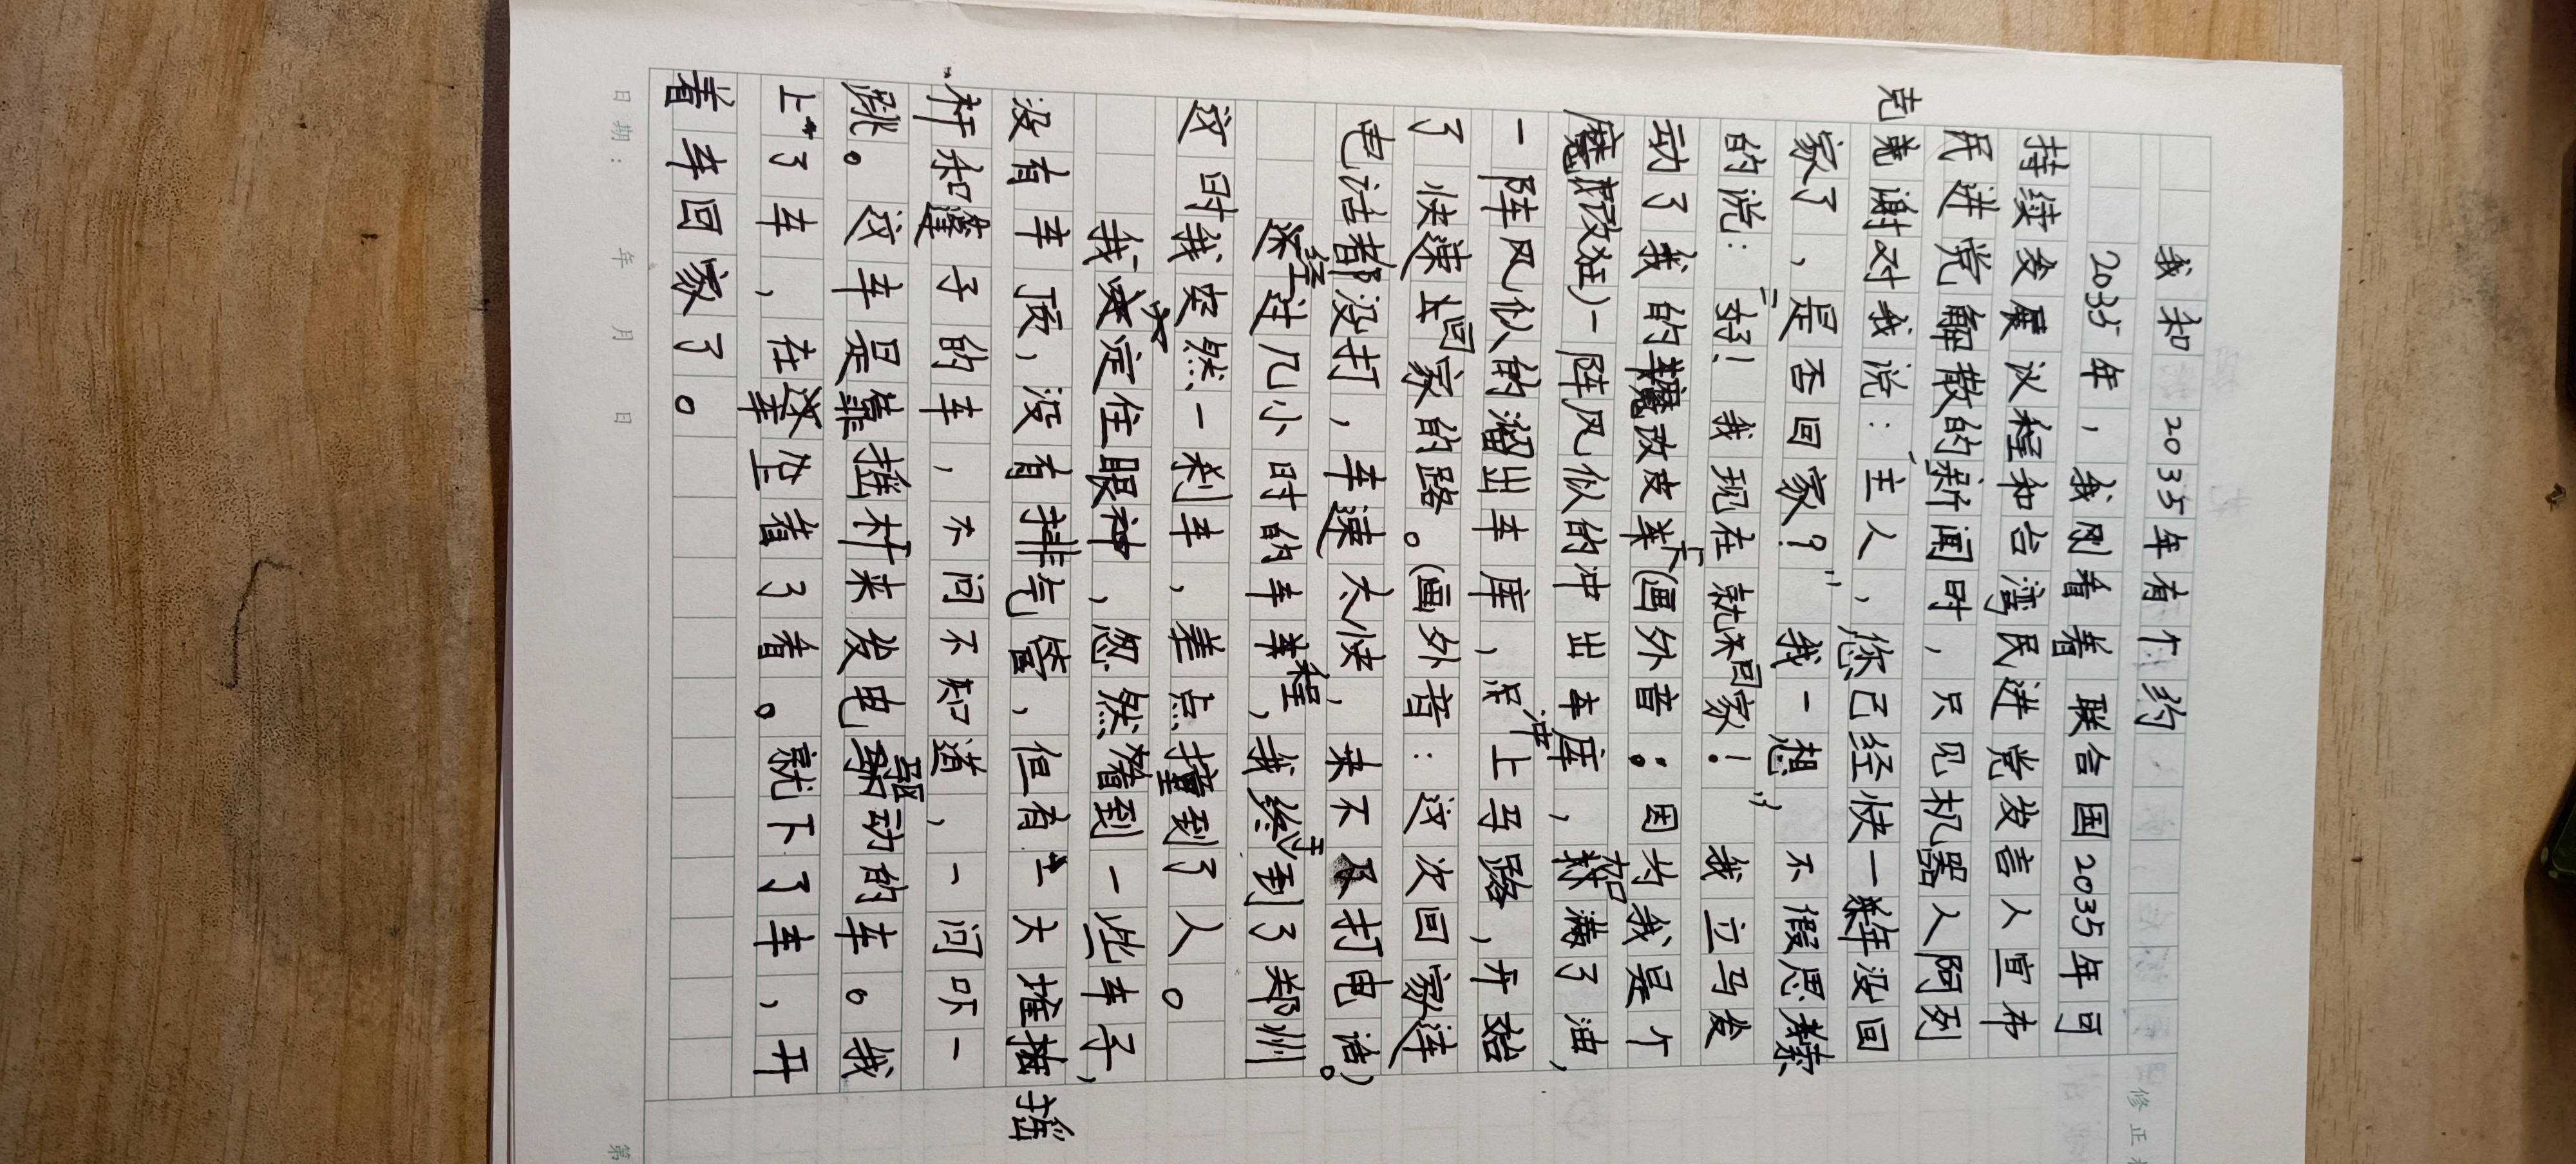 我和2035年有个约
2035年，我刚看着联合国2035年可
持续发展议程和台湾民进党发言人宣布
民进党解散的新闻时，只见机器人阿列
克谢对我说：“主人，您已经快一年没回
家了，是否回家？”我一想，不假思索
的说：“好！我现在就回家！”我立马发
动了我的魔改皮卡(画外音：因为我是个
魔改狂)一阵风似的冲出车库，加满了油，
一阵风似的溜出车库，冲上马路，开始
了快速回家的路。(画外音：这次回家连
电话都没打，车速太快，来不及打电话。)
经过几小时的车程，我终于到了郑州
这时我突然一刹车，差点撞到了人。
我定住眼神，忽然看到一些车子，
没有车顶，没有排气管，但有一大堆摇
杆和篷子的车，不问不知道，一问吓一
跳。这车是靠摇杆来发电驱动的车。我
上了车，在车上坐着了看。就下了车，开
着车回家了。
日期： 年 月 日
第
修正